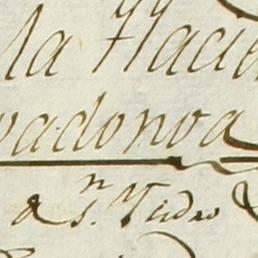 la Hacie
vadonva
a Sn. Pedro